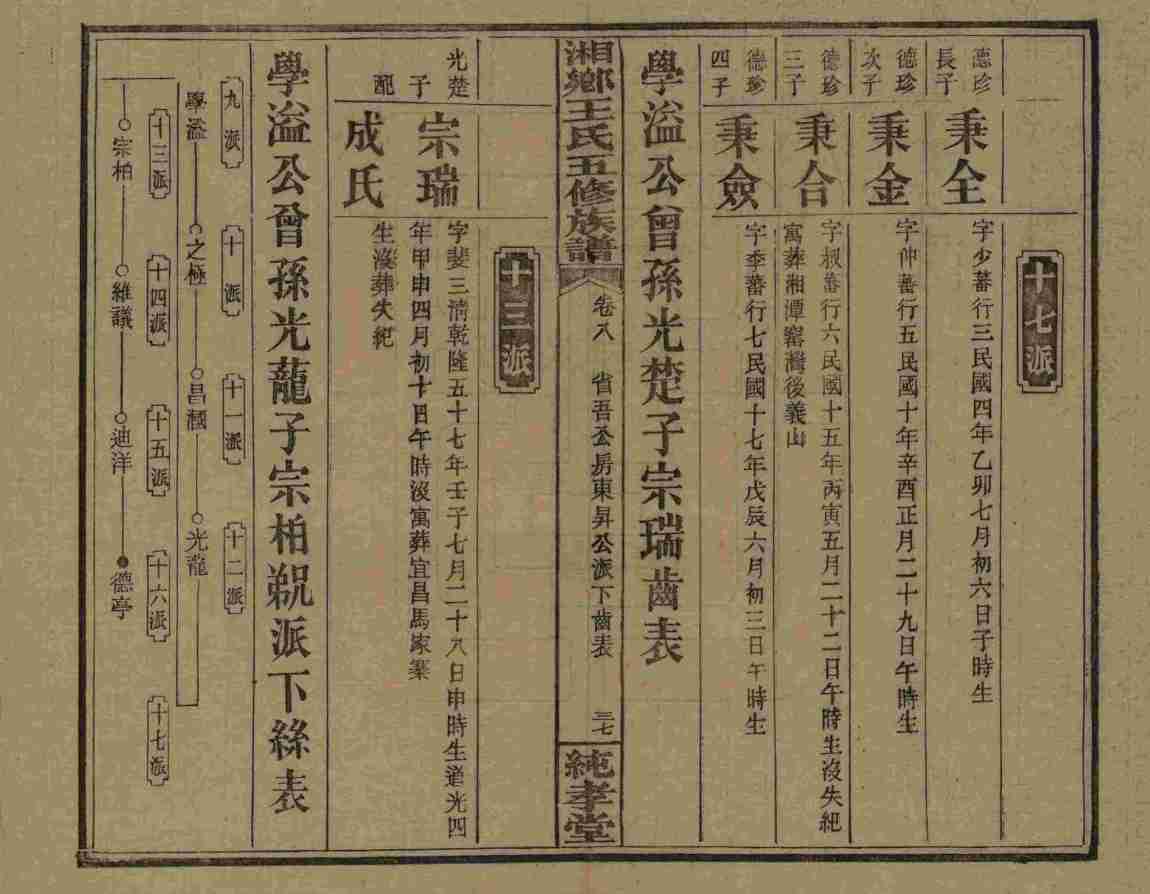 十七派
德珍長子
秉全
字少蕃行三民國四年乙卯七月初六日子時生
德珍次子
秉金
字仲蕃行五民國十年辛酉正月二十九日午時生
德珍三子
秉合
字叔蕃行六民國十五年丙寅五月二十二日午時生沒失紀
寓葬湘潭窰灣後義山
德珍四子
秉僉
字季蕃行七民國十七年戊辰六月初三日午時生
學溢公曾孫光楚子宗瑞齒表
湘鄉王氏五修族譜
卷八
省吾公房東昇公派下齒表
三七
純孝堂
十三派
光楚子
宗瑞
字斐三清乾隆五十七年壬子七月二十八日申時生道光四
年甲申四月初十日午時沒寓葬宜昌馬家寨
配
成氏
生沒葬失紀
學溢公曾孫光龍子宗柏派下絲表
九派
十派
十一派
十二派
學溢
之極
昌
光龍
十三派
十四派
十五派
十六派
十七派
宗柏
維議
迪洋
德亭